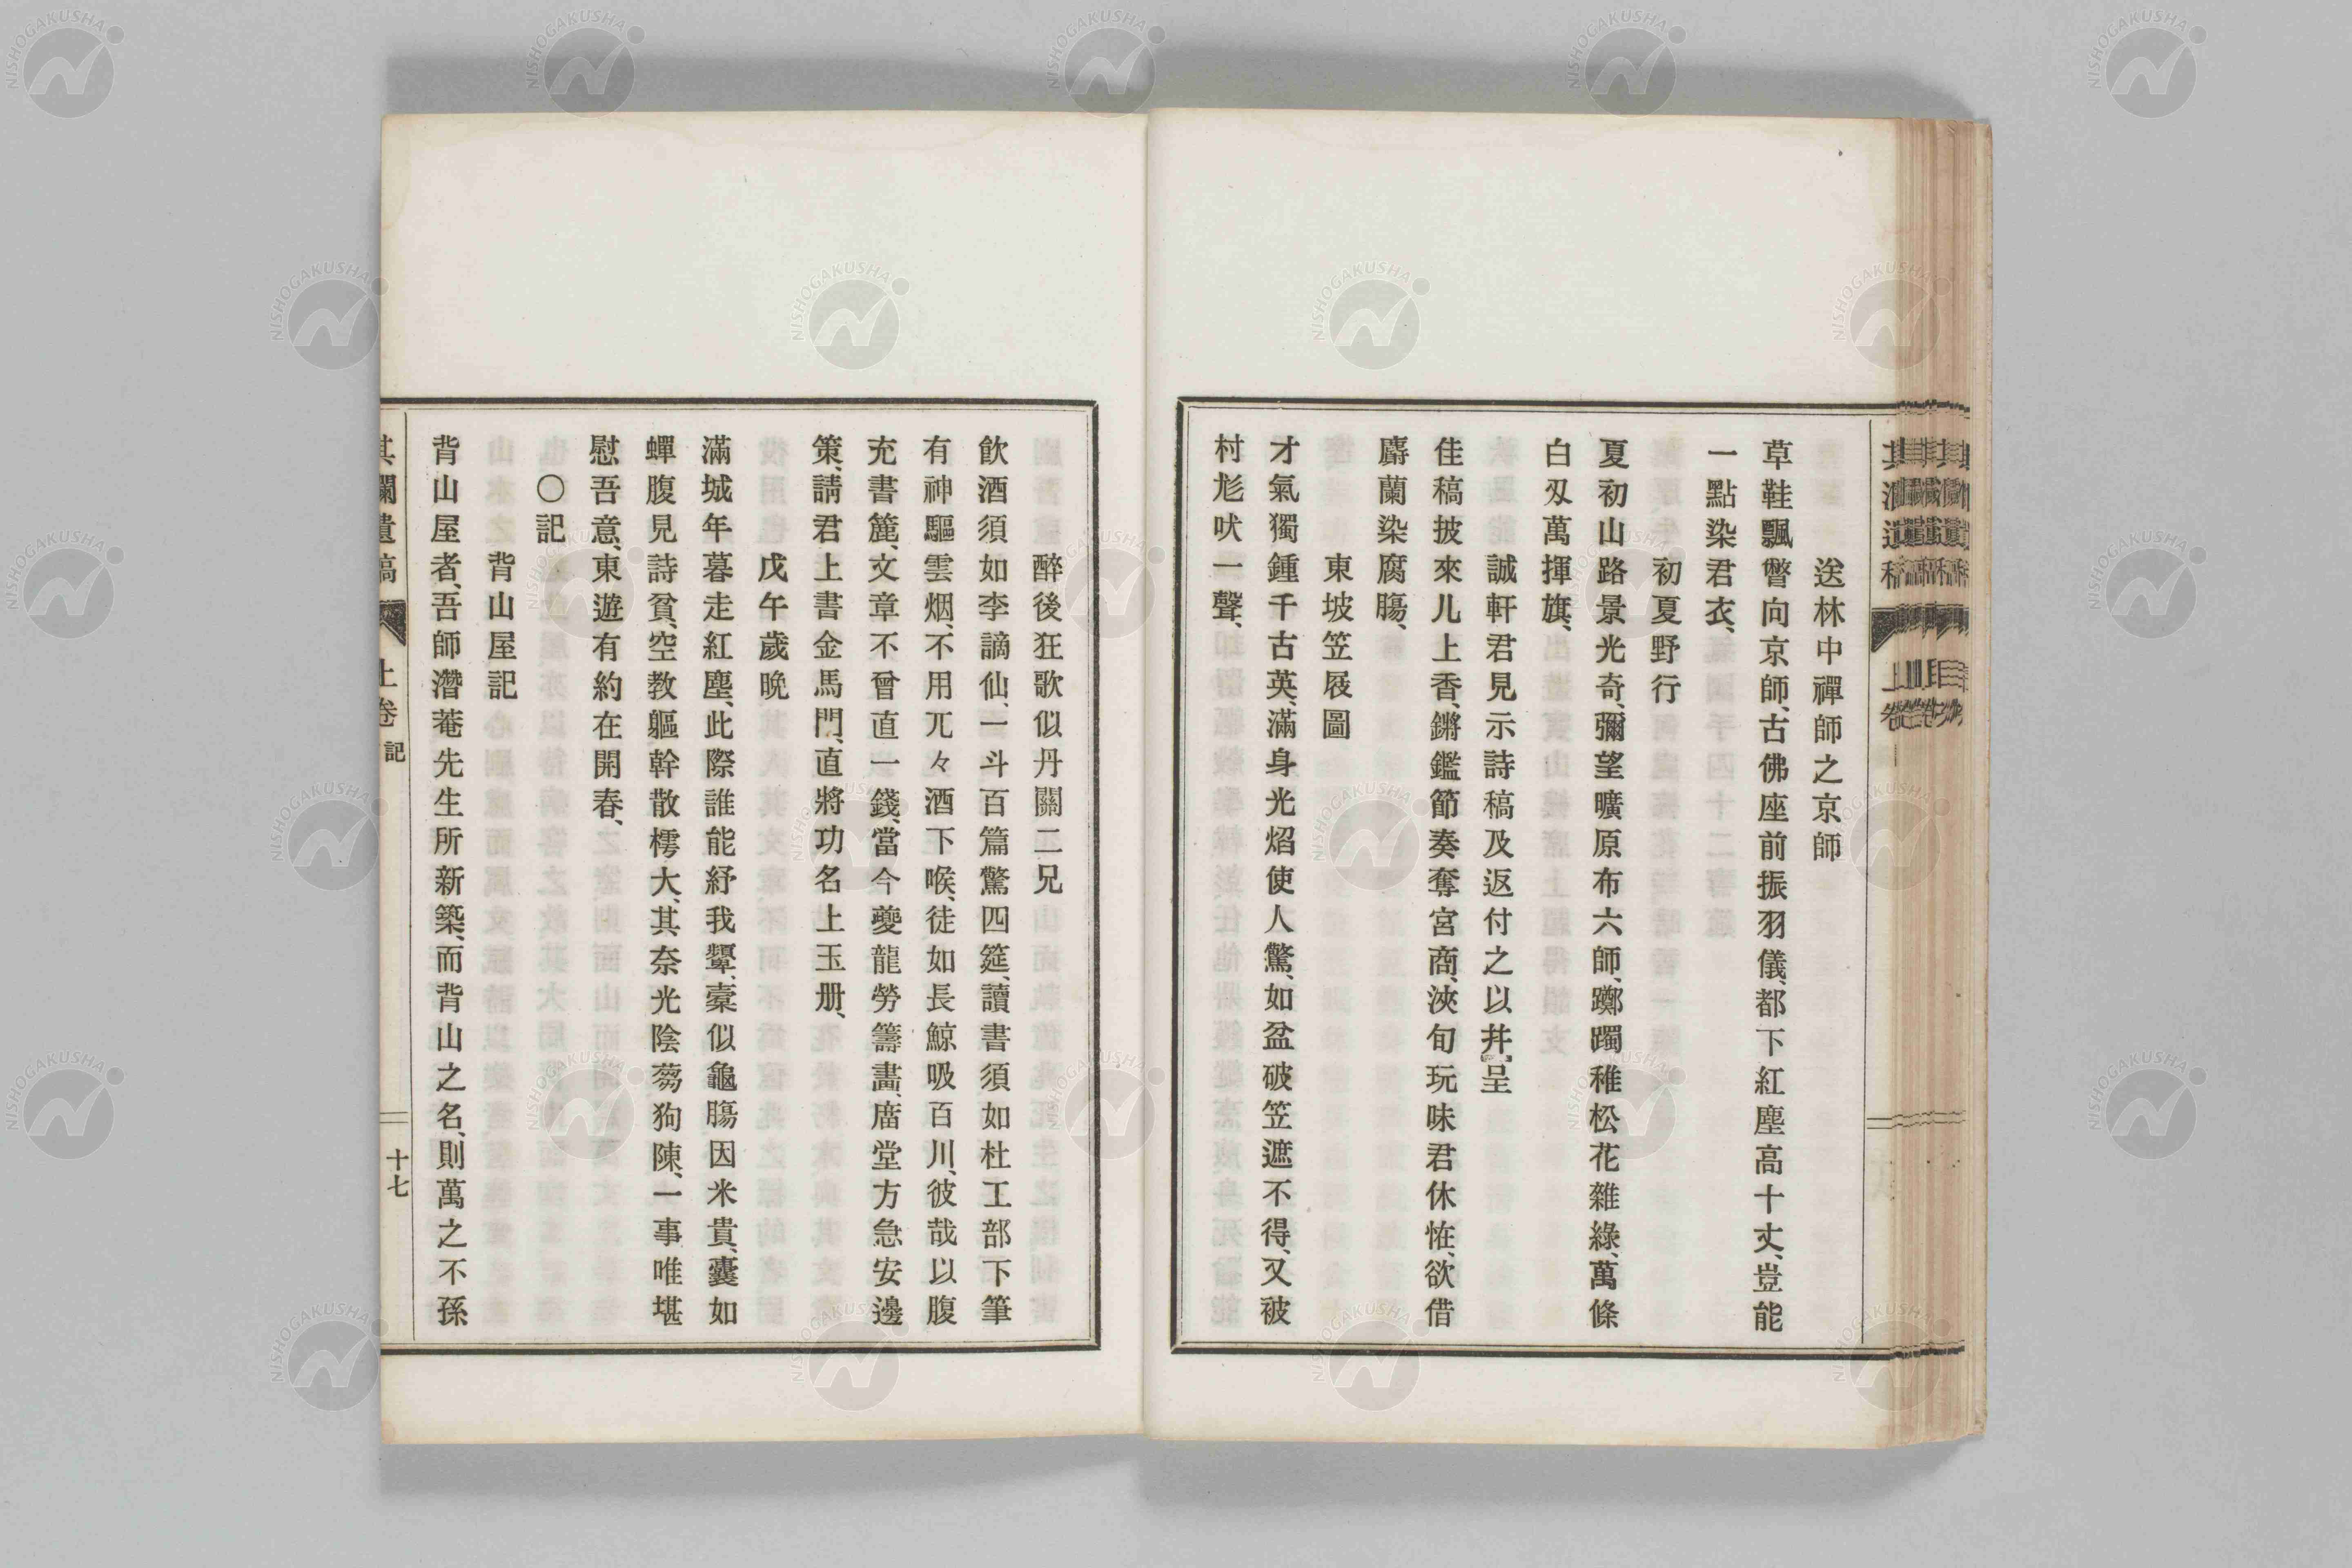 送林中禪師之京師
草鞋飄瞥向京師、古佛座前振羽儀、都下紅塵高十丈、豈能
一點染君衣、
初夏野行
夏初山路景光奇、彌望曠原布六師、躑躅稚松花雜綠、萬條
白刄萬揮旗、
誠軒君見示詩稿及返付之以幷呈
佳稿披來几上香、鏘鑑節奏奪宮商、浹旬玩味君休恠、欲借
麝蘭染腐膓、
東坡笠屐圖
才氣獨鍾千古英、滿身光熖使人驚、如盆破笠遮不得、又被
村尨吠一聲、
醉後狂歌似丹關二兄
飮酒須如李謫仙、一斗百篇驚四筵、讀書須如杜工部下筆
有神驅雲烟、不用兀々酒下喉、徒如長鯨吸百川、彼哉以腹
充書簏、文章不曾直一錢、當今夔龍勞籌畫、廣堂方急安邊
策、請君上書金馬門、直將功名上玉册、
戊午歲晩
滿城年暮走紅塵、此際誰能紓我顰、槖似龜膓因米貴、囊如
蟬腹見詩貧、空敎軀幹散樗大、其奈光陰蒭狗陳、一事唯堪
慰吾意、東遊有約在開春、
○記
背山屋記
背山屋者、吾師濳菴先生所新築、而背山之名、則萬之不孫
其瀾遺稿 上卷 記 十七